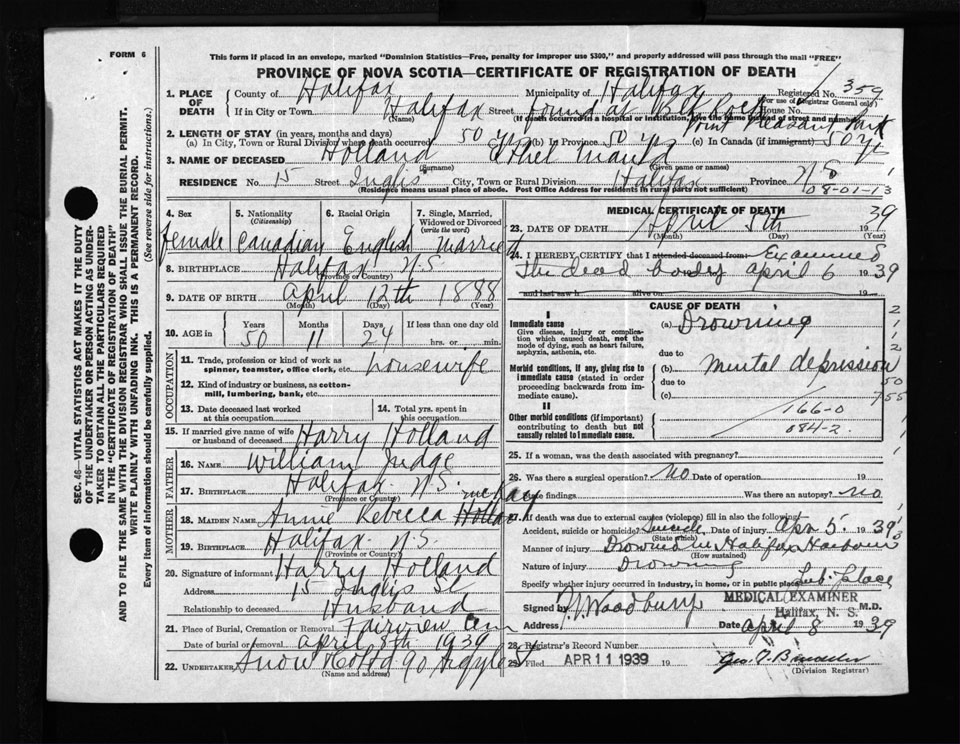 FORM 6
This form if placed in an envelope, marked "Dominion Statistics—Free, penalty for improper use $300," and properly addressed will pass through the mail "FREE"
PROVINCE OF NOVA SCOTIA—CERTIFICATE OF REGISTRATION OF DEATH
1. PLACE OF DEATH County of Halifax Municipality of Halifax Registered No. 359
(For use of Registrar General only)
If in City or Town Halifax Street found at Blk Rock House No.
(Name) (If death occurred in a hospital or institution, give the name instead of street and number)
Point Pleasant Park
2. LENGTH OF STAY (in years, months and days)
(a) In City, Town or Rural Division where death occurred 50 yrs (b) In Province 50 yrs (c) In Canada (if immigrant) 50 yrs
3. NAME OF DECEASED Holland Ethel Maud
(Surname)
RESIDENCE No. 15 Street Inglis City, Town or Rural Division Halifax Province N S
(Residence means usual place of abode. Post Office Address for residents in rural parts not sufficient) 08-01-13
4. Sex female
5. Nationality (Citizenship) Canadian
6. Racial Origin English
7. Single, Married, Widowed or Divorced (write the word) married
8. BIRTHPLACE Halifax N.S.
(Province or Country)
9. DATE OF BIRTH April 12th 1888
(Month) (Day) (Year)
10. AGE in Years 50 Months 11 Days 24 If less than one day old hrs. or min.
OCCUPATION
11. Trade, profession or kind of work as spinner, teamster, office clerk, etc. housewife
12. Kind of industry or business, as cotton-mill, lumbering, bank, etc.
13. Date deceased last worked at this occupation
14. Total yrs. spent in this occupation
15. If married give name of wife or husband of deceased Harry Holland
FATHER
16. NAME William Judge
17. BIRTHPLACE Halifax N.S.
(Province or Country)
MOTHER
18. MAIDEN NAME Annie Rebecca McKay
19. BIRTHPLACE Halifax N.S.
(Province or Country)
20. Signature of informant Harry Holland
Address 15 Inglis St
Relationship to deceased Husband
21. Place of Burial, Cremation or Removal Fairview Cem
Date of burial or removal April 8th 1939
22. UNDERTAKER Snow Co Ltd 90 Argyle St
(Name and address)
MEDICAL CERTIFICATE OF DEATH
23. DATE OF DEATH April 5th 1939
(Month) (Day) (Year)
24. I HEREBY CERTIFY that I attended deceased from: Examined
The dead body April 6 1939
and last saw h alive on 19
CAUSE OF DEATH
I
Immediate cause
Give disease, injury or complication which caused death, not the mode of dying, such as heart failure, asphyxia, asthenia, etc.
(a) Drowning
due to
Morbid conditions, if any, giving rise to immediate cause (stated in order proceeding backwards from immediate cause).
(b) Mental depression
due to
(c)
II
Other morbid conditions (if important) contributing to death but not causally related to immediate cause.
166-0
084-2
25. If a woman, was the death associated with pregnancy?
26. Was there a surgical operation? No Date of operation 19
State findings Was there an autopsy? no
27. If death was due to external causes (violence) fill in also the following:
Accident, suicide or homicide? Suicide Date of injury Apr 5. 1939
(State which)
Manner of injury Drowned in Halifax Harbour
(How sustained)
Nature of injury Drowning
Specify whether injury occurred in industry, in home, or in public place Pub. Place
MEDICAL EXAMINER
Halifax, N. S.
Signed by Woodbury M.D.
Address Date April 8 1939
28. Registrar's Record Number
29. Filed APR 11 1939 19
(Division Registrar)
SEC. 46—VITAL STATISTICS ACT MAKES IT THE DUTY OF THE UNDERTAKER OR PERSON ACTING AS UNDERTAKER TO OBTAIN ALL THE PARTICULARS REQUIRED IN THE "CERTIFICATE OF REGISTRATION OF DEATH"
AND TO FILE THE SAME WITH THE DIVISION REGISTRAR WHO SHALL ISSUE THE BURIAL PERMIT.
WRITE PLAINLY WITH UNFADING INK. THIS IS A PERMANENT RECORD.
Every item of information should be carefully supplied. (See reverse side for instructions.)